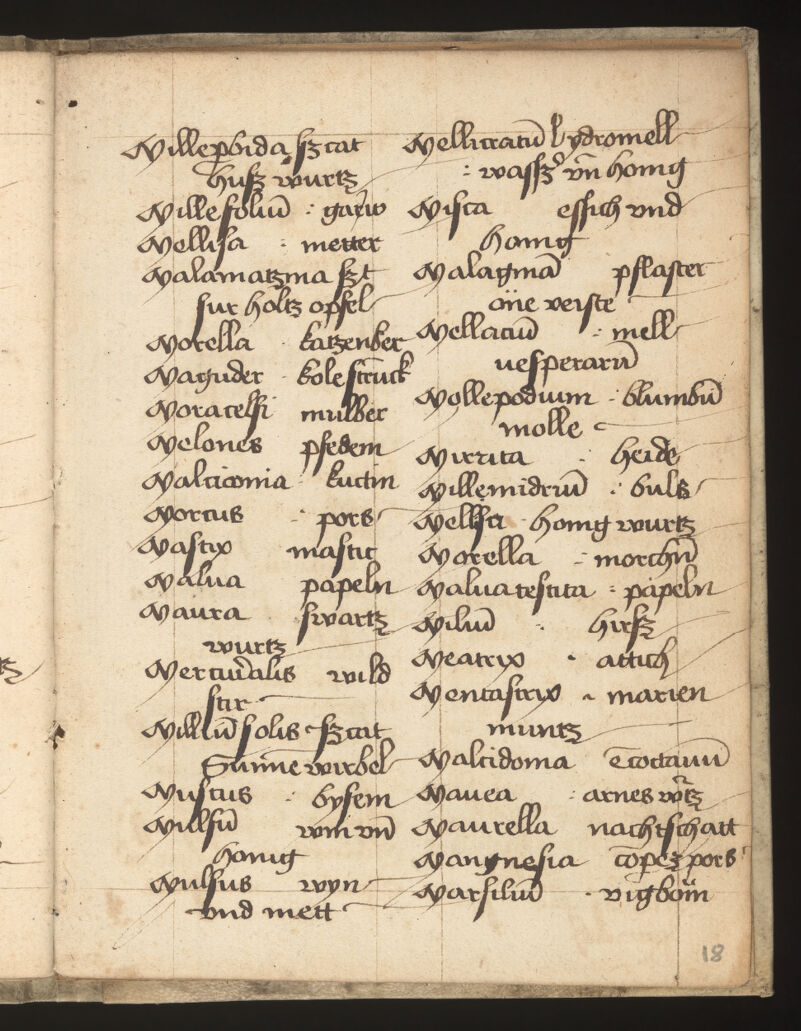 Millemorbida sz cat
husz wurtz
Millefoliū : garw
Mellisa : metter
Malamatzma sz t
fur holtz opfel
Morella katzenber
Maguder kolestruck
Moracelsi mulber
Melones pfedem
Malcicomia kuctin
Morcus pors
Mastix mastic
Malua papeln
Maura swartz
wurtz
Mercurialis wild
stir
Milliū solis sz cat
Sunne wirbel
Muscus : bysem
Mulsū win vn̄
honig
Mulsus wyn
vnd mett
Mellicratū hydromell
: wassz vn̄ honig
Misca essich vnd
honig
Malagmā pflaster
one verste
Mellaciū : mell
uesperarū
Mollepodium : blumbū
molle
Mirrita : heide
Millemidriū : buls
Mellsa honig wurtz
Morella : morchn̄
Malua testita : papeln
Miliū : hirsz
Meatrix · attich
Mentastrix marien
muntz
Malcidoma coctanū
Mavea : arnes wurtz
Maurella nachtschatt
Mangnesia pors
Marsiliū · vigbom
18